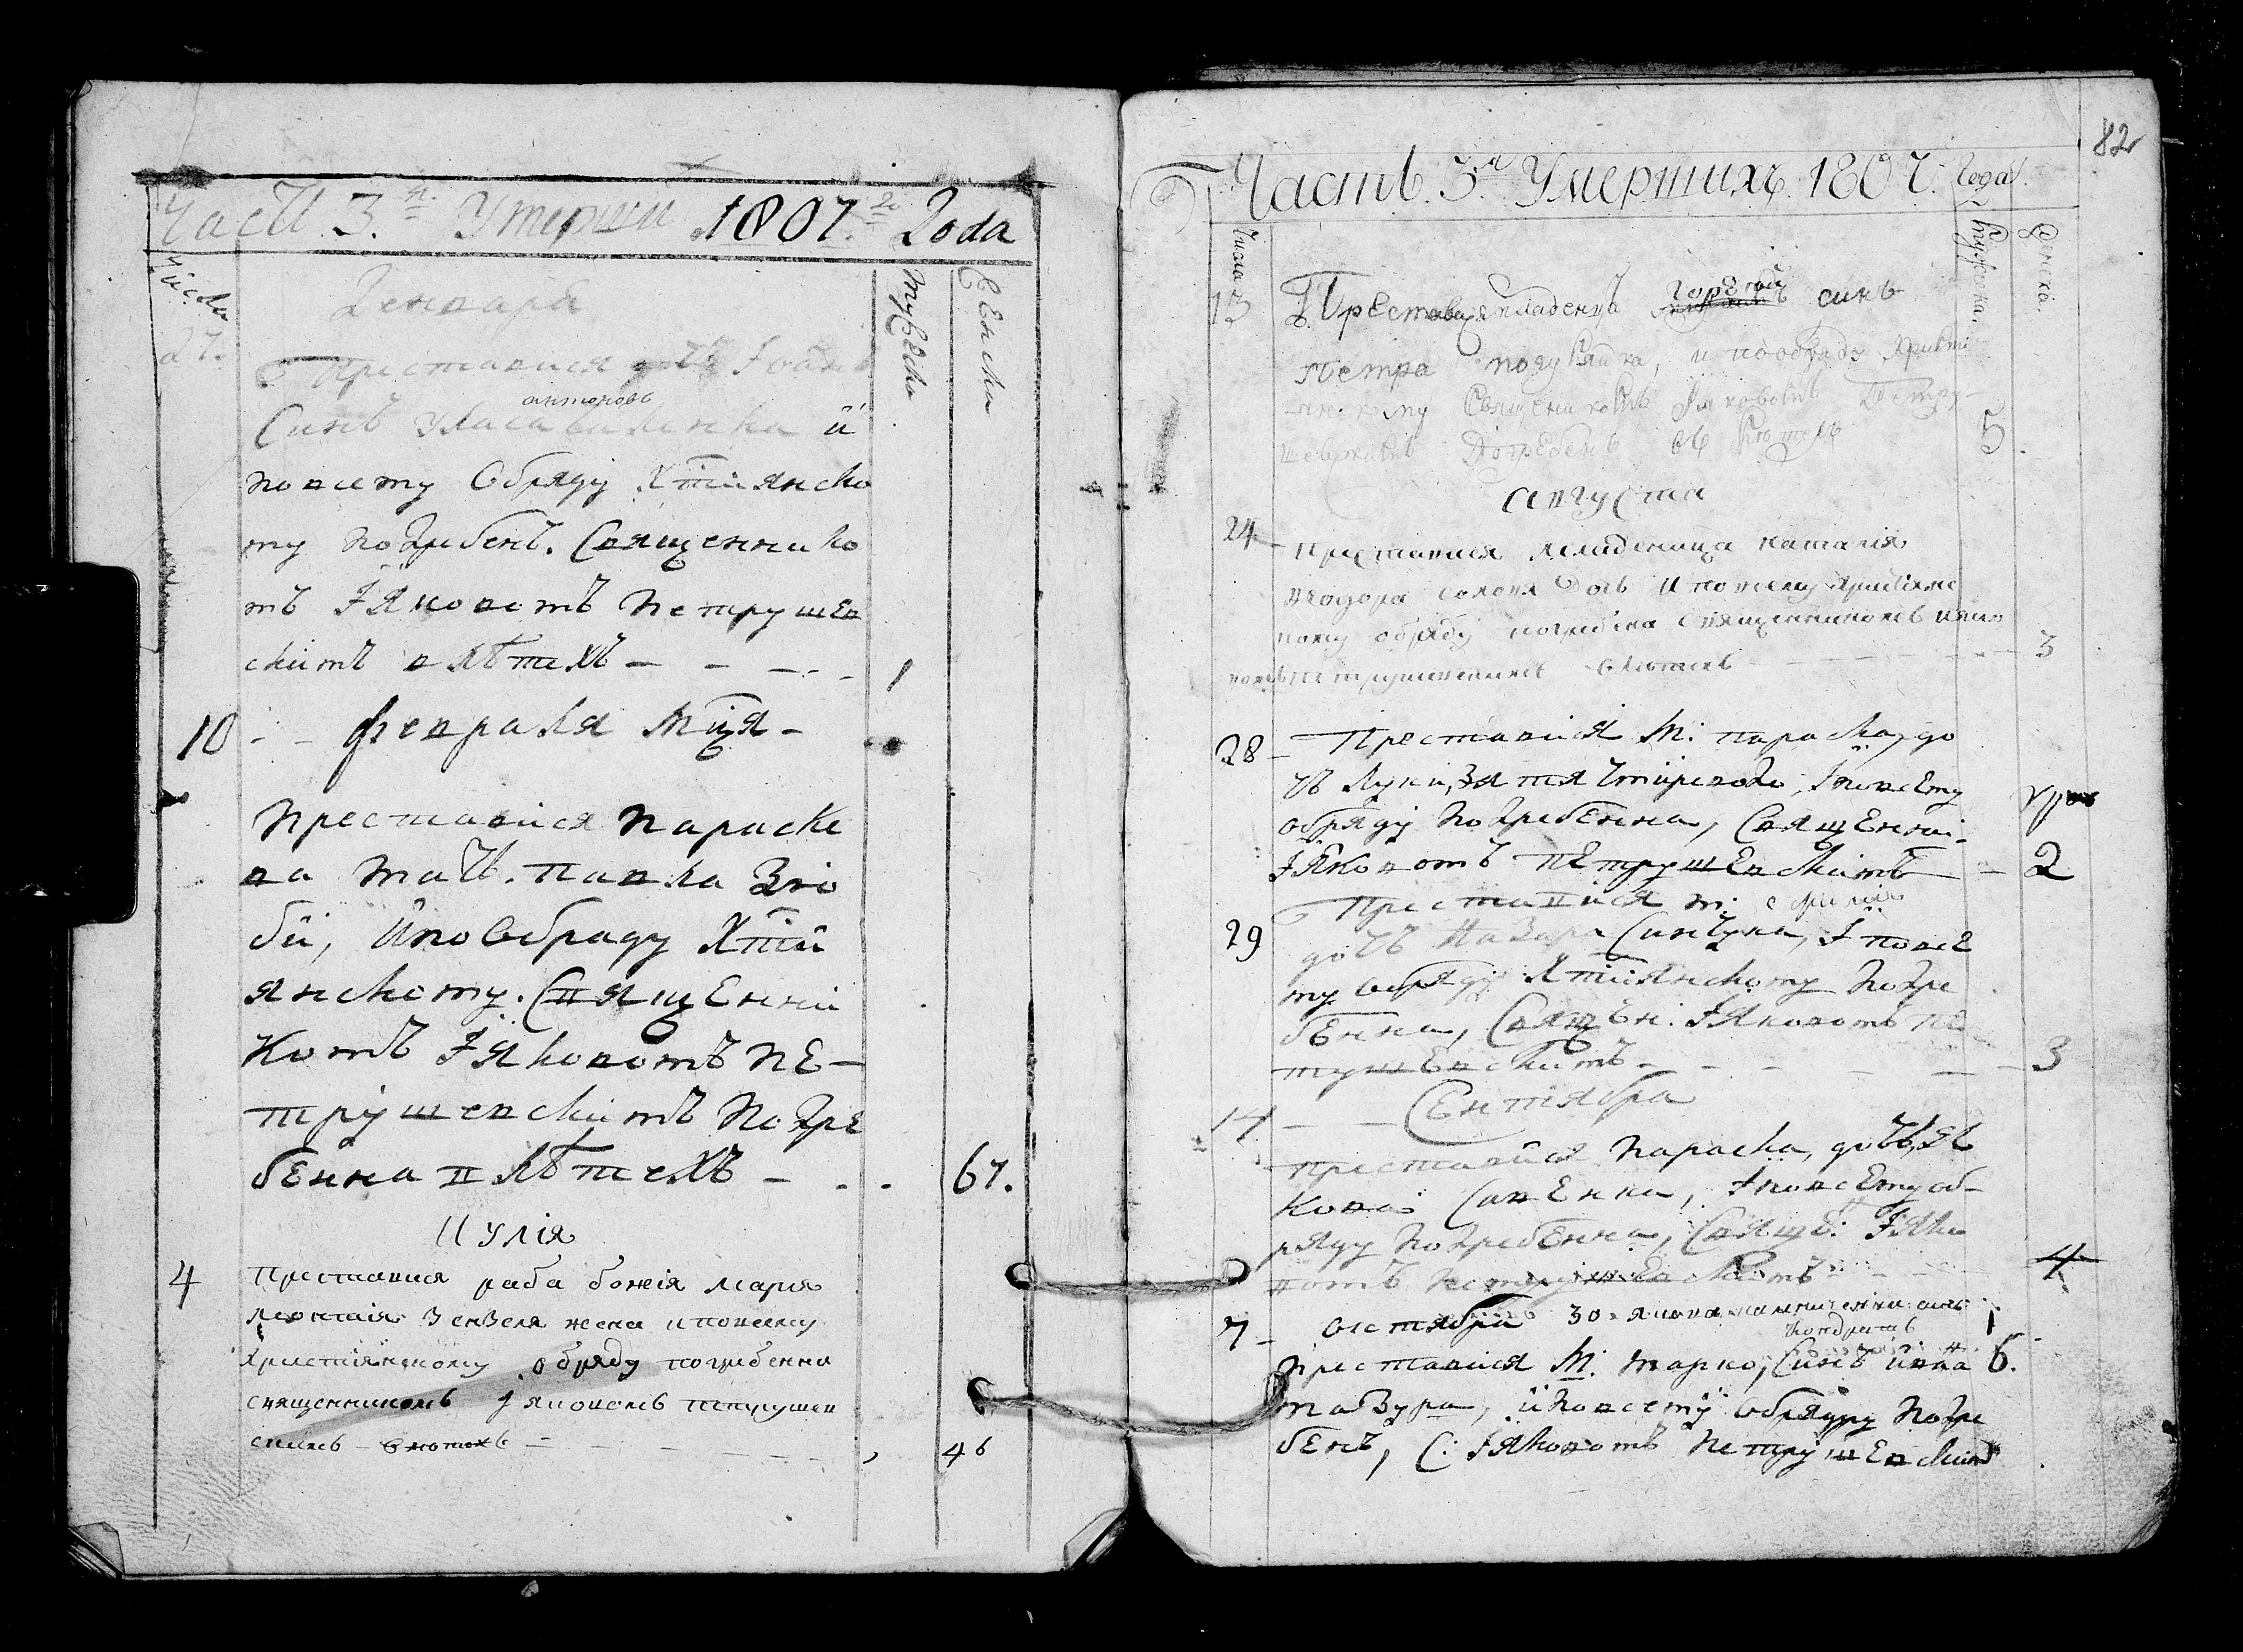 Часть 3.я Умерши 1807.го Года
Число
Мужеска
Женска
Генваря
27.
Преставися Іоанъ
антоновъ
Синъ Уласа и
повсему Обряду Хтіянско
му погребенъ. Священнико
мъ Іяковомъ Петрушев
скимъ в лѣтехъ 1
10 февраля мця
Преставися Параске
ва мать павла Зю
би, ипо Обряду Хтій
янскому. Священни
комъ Іяковомъ пе-
трушевскимъ погре
бенна в лѣтехъ 67.
Иулія
4 Преставися раба божія марія
леонтія Зензеля жена и повсему
християнскому обряду погребенна
священникомъ Іяковомъ петрушев
скимъ влѣтехъ 46
82
Часть 3я Умершихъ 1807. Года
Числа
Мужеска.
Женска.
13 Преставися младенецъ Гордѣй синъ
Петра , и пообряду Христи
янскому Священикомъ Іяковомъ Петру-
шевскимъ Погребенъ въ лѣтехъ 5
августа
24 Преставися младеница наталія
федора дочь и повсему христіянс
кому обряду погребена священникомъ иако
вомъ петрушевскимъ влѣтехъ 3
28 Преставися м: параска, до
чь Луки, Зятя , Іповсему
обряду погребенна, Священни:
Іяковомъ петрушевскимъ 2
29 Преставися м:
дочь Назара Синчука, Іповсе
му обряду Хтіянскому погре
бенна, Священ: Іяковомъ пе
трушевскимъ 3
Сентября
14
преставися параска, дочь, Яс
кова Савенка, Іповсему об-
ряду погребенна, Свяще: Іяко
вомъ петрушевскимъ 4
7 октября 30 синъ 1
Кондратъ
преставися М: марко, Синъ ивана 6.
мазура, иповсему обряду погре
бенъ, С: Іяковомъ петрушевскимъ